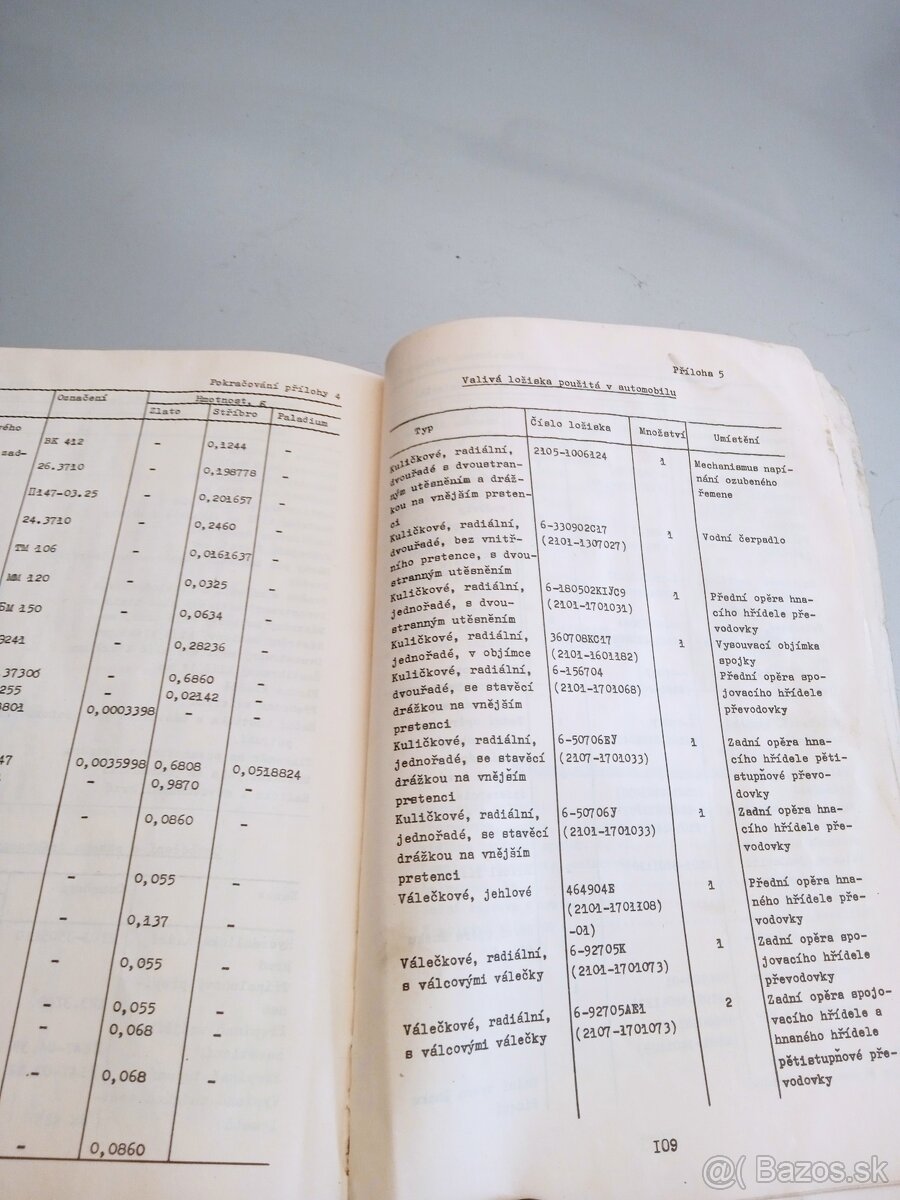 Pokračování přílohy 4
Označení
Hmotnost, g
Zlato Stříbro Paladium
vého
zad-
BK 412 - 0,1244 -
26.3710 - 0,198778 -
П147-03.25 - 0,201657 -
24.3710 - 0,2460 -
TM 106 - 0,0161637 -
MM 120 - 0,0325 -
БM 150 - 0,0634 -
3241 - 0,28236 -
37306 - 0,6860 -
255 - 0,02142 -
8801 0,0003398 - -
47 0,0035998 0,6808 0,0518824
- 0,9870 -
- 0,0860 -
- 0,055 -
- 0,137 -
- 0,055 -
- 0,055 -
- 0,068 -
- 0,068 -
- 0,0860
Příloha 5
Valivá ložiska použitá v automobilu
Typ Číslo ložiska Množství Umístění
Kuličkové, radiální, 2105-1006124 1 Mechanismus napí-
dvouřadé s dvoustran- nání ozubeného
ným utěsněním a dráž- řemene
kou na vnějším prsten-
ci
Kuličkové, radiální, 6-330902C17 1 Vodní čerpadlo
dvouřadé, bez vnitř- (2101-1307027)
ního prstence, s dvou-
stranným utěsněním
Kuličkové, radiální, 6-180502KIУC9 1 Přední opěra hna-
jednořadé, s dvou- (2101-1701031) cího hřídele pře-
stranným utěsněním vodovky
Kuličkové, radiální, 360708KC17 1 Vysouvací objímka
jednořadé, v objímce (2101-1601182) spojky
Kuličkové, radiální, 6-156704 Přední opěra spo-
dvouřadé, se stavěcí (2101-1701068) jovacího hřídele
drážkou na vnějším převodovky
prstenci
Kuličkové, radiální, 6-50706EУ 1 Zadní opěra hna-
jednořadé, se stavěcí (2107-1701033) cího hřídele pěti-
drážkou na vnějším stupňové převo-
prstenci dovky
Kuličkové, radiální, 6-50706У 1 Zadní opěra hna-
jednořadé, se stavěcí (2101-1701033) cího hřídele pře-
drážkou na vnějším vodovky
prstenci
Válečkové, jehlové 464904E 1 Přední opěra hna-
(2101-1701108) ného hřídele pře-
-01) vodovky
Válečkové, radiální, 6-92705K 1 Zadní opěra spo-
s válcovými válečky (2101-1701073) jovacího hřídele
převodovky
Válečkové, radiální, 6-92705AE1 2 Zadní opěra spojo-
s válcovými válečky (2107-1701073) vacího hřídele a
hnaného hřídele
pětistupňové pře-
vodovky
I09
@( Bazos.sk